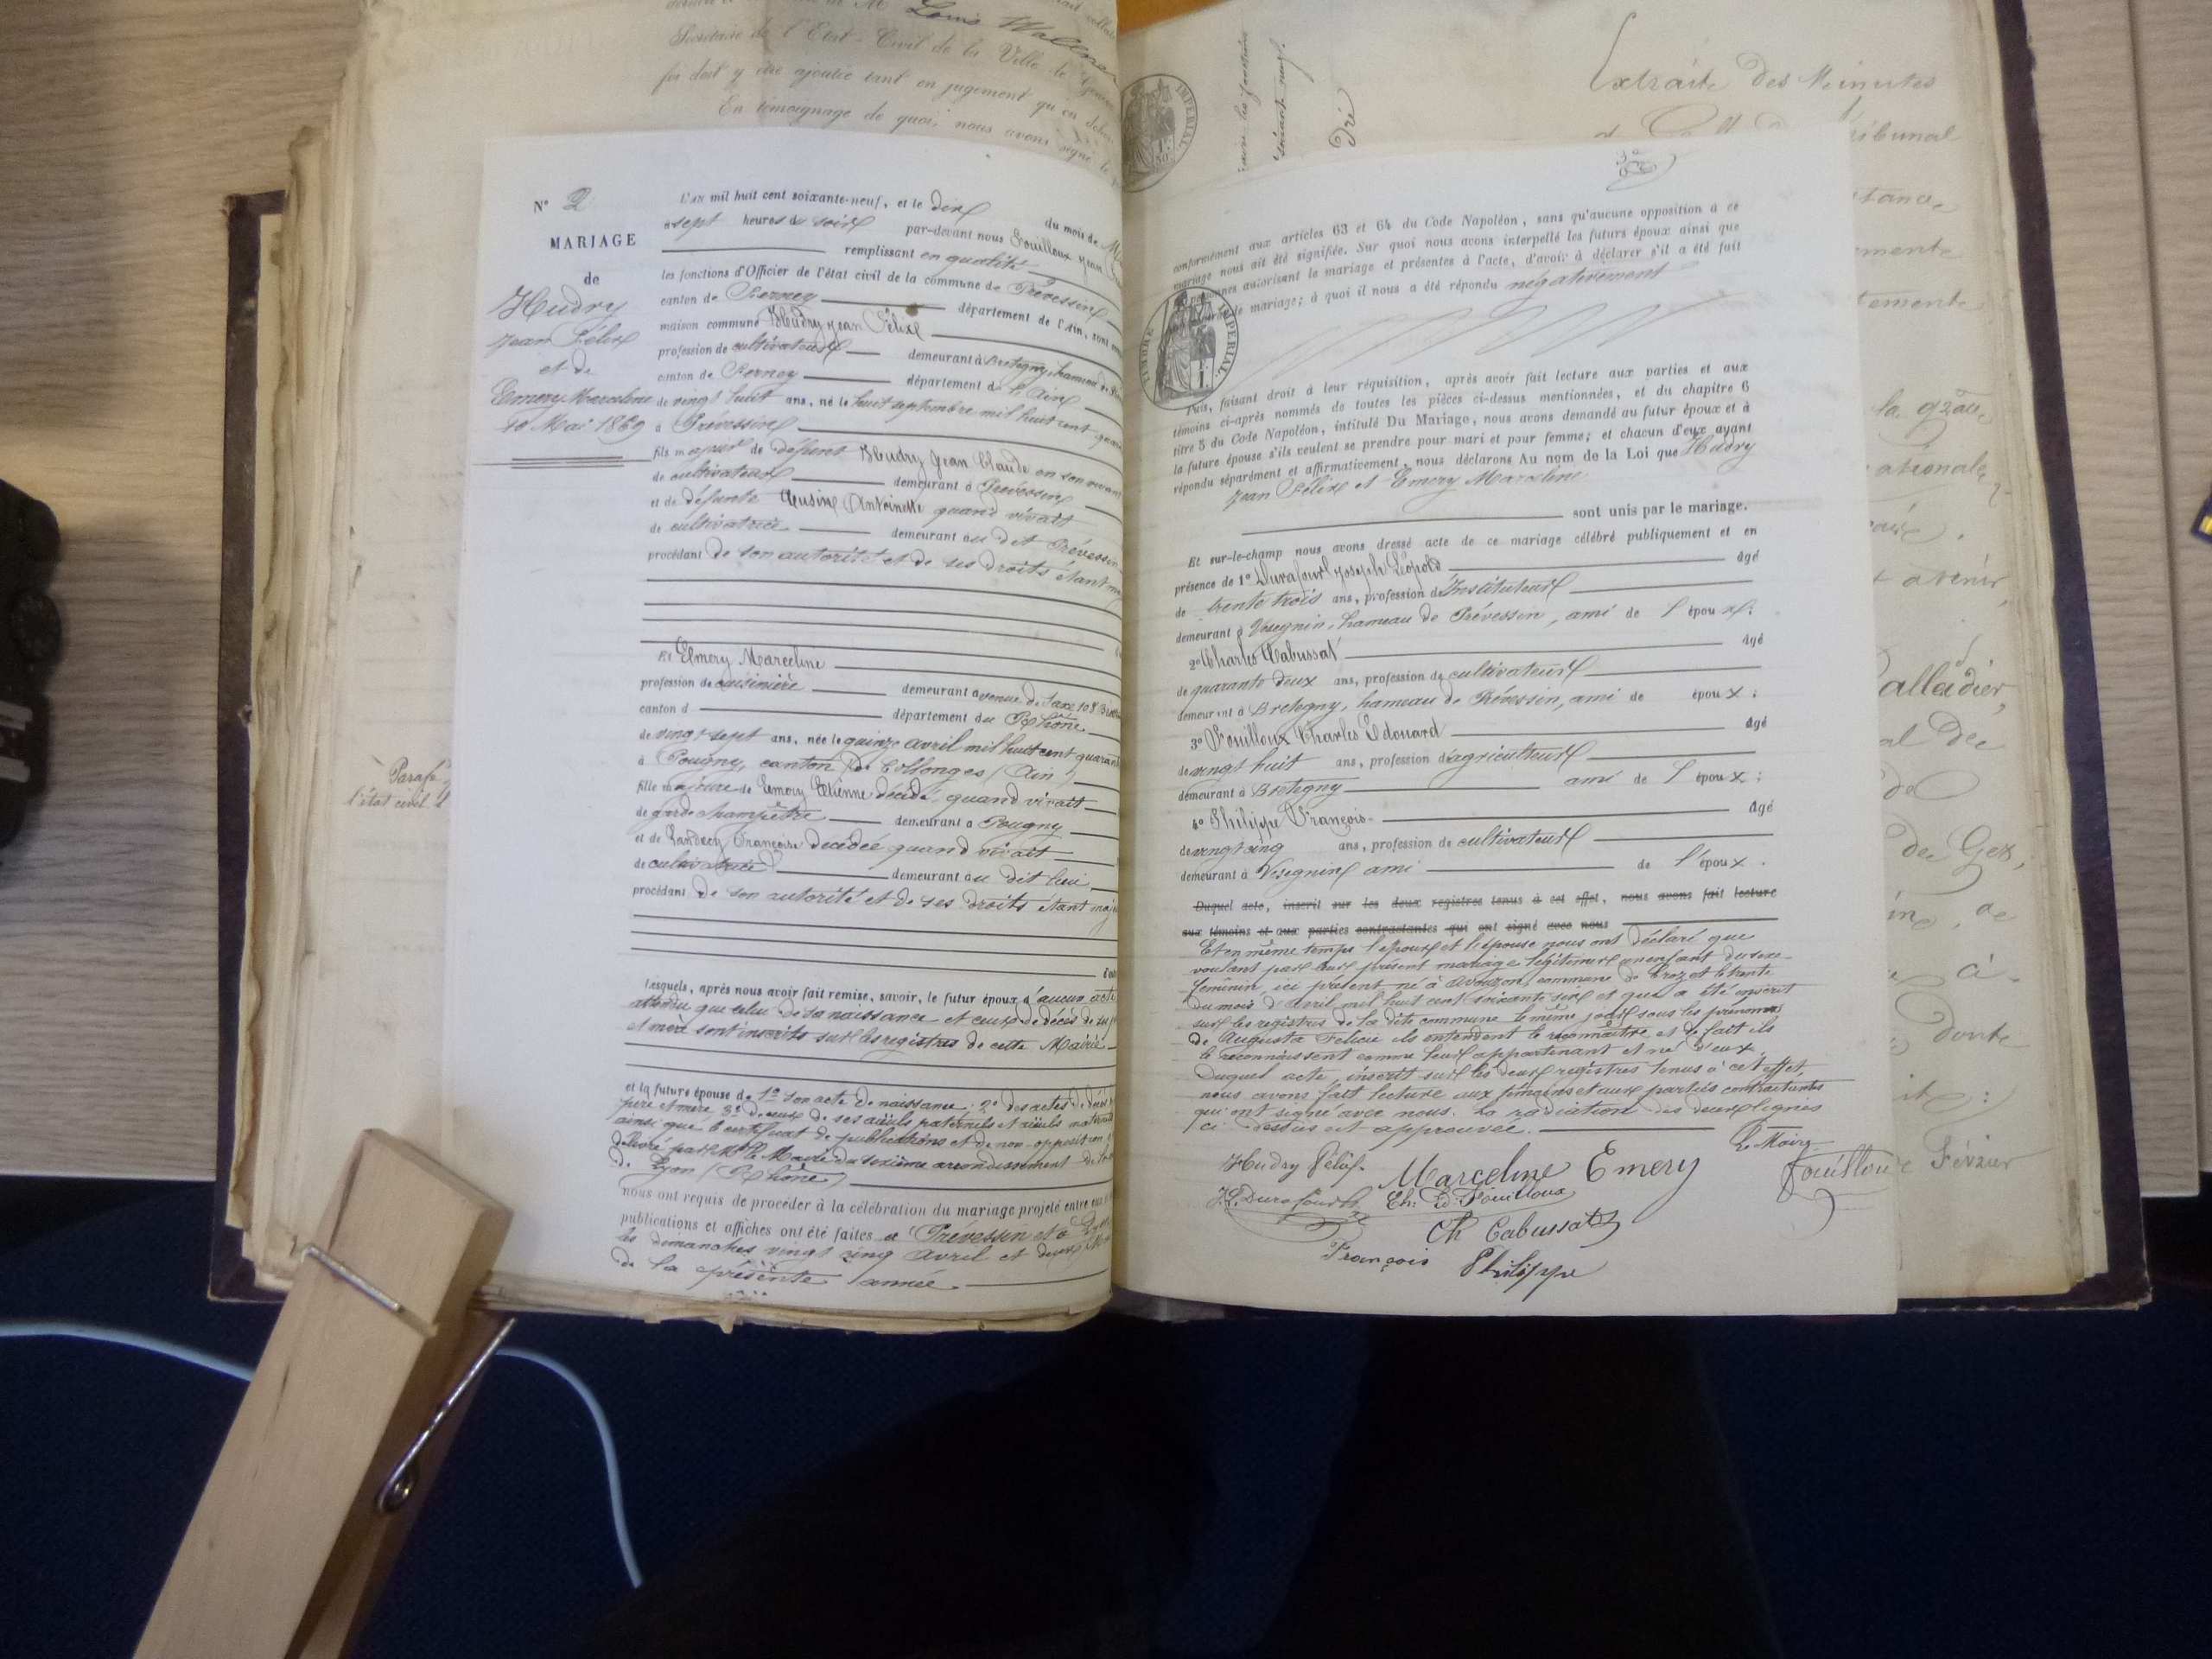 Louis
Secrétaire de l'Etat-Civil de la Ville de
foi doit y être ajoutée tant en jugement qu'en
En témoignage de quoi, nous avons signé le
Parafe
l'état civil
N° 2
MARIAGE
de
Hudry
Jean Félix
et de
Emery Marceline
10 Mai 1869
L'AN mil huit cent soixante-neuf, et le dix du mois de
à sept heures du soir par-devant nous Fouilloux Jean
remplissant en qualité
les fonctions d'Officier de l'état civil de la commune de Prévessin
canton de Ferney département de l'Ain, sont
maison commune Hudry Jean Félix
profession de cultivateur demeurant à Bretegny, hameau de
canton de Ferney département de l'Ain
de vingt huit ans, né le huit septembre mil huit cent
à Prévessin
fils majeur de défunt Hudry Jean Claude en son vivant
de cultivateur demeurant à Prévessin
et de défunte Antoinette quand vivait
de cultivatrice demeurant au dit Prévessin
procédant de son autorité et de ses droits étant
Et Emery Marceline
profession de cuisinière demeurant avenue de Saxe 108
canton d département du Rhône
de vingt sept ans, née le quinze avril mil huit cent
à Pougny, canton de Collonges (Ain)
fille majeure de Emery Etienne décédé, quand vivait
de garde champêtre demeurant à Pougny
et de Françoise décédée quand vivait
de cultivatrice demeurant au dit lieu
procédant de son autorité et de ses droits étant
Lesquels, après nous avoir fait remise, savoir, le futur époux d'aucun acte
attendu que celui de sa naissance et ceux de décès de ses
et mère sont inscrits sur les registres de cette Mairie
et la future épouse de 1° son acte de naissance: 2° des actes de décès
père et mère 3° de ceux de ses aïeuls paternels et aïeuls
ainsi que le certificat de publications et de non-opposition
délivré par Mr le Maire du sixième arrondissement
de Lyon (Rhône)
nous ont requis de procéder à la célébration du mariage projeté entre
publications et affiches ont été faites à Prévessin et à
les dimanches vingt cinq avril et deux
de la présente année.
TIMBRE IMPERIAL
Extrait des Minutes
conformément aux articles 63 et 64 du Code Napoléon, sans qu'aucune opposition à ce
mariage nous ait été signifiée. Sur quoi nous avons interpellé les futurs époux ainsi que
personnes autorisant le mariage et présentes à l'acte, d'avoir à déclarer s'il a été fait
de mariage; à quoi il nous a été répondu négativement
Puis, faisant droit à leur réquisition, après avoir fait lecture aux parties et aux
témoins ci-après nommés de toutes les pièces ci-dessus mentionnées, et du chapitre 6
titre 5 du Code Napoléon, intitulé Du Mariage, nous avons demandé au futur époux et à
la future épouse s'ils veulent se prendre pour mari et pour femme; et chacun d'eux ayant
répondu séparément et affirmativement, nous déclarons Au nom de la Loi que Hudry
Jean Félix et Emery Marceline
sont unis par le mariage.
Et sur-le-champ nous avons dressé acte de ce mariage célébré publiquement et en
présence de 1° Durafour Joseph Léopold âgé
de trente trois ans, profession d'Instituteur
demeurant à Vésegnin, hameau de Prévessin, ami de l'époux;
2° Charles Cabussat âgé
de quarante deux ans, profession de cultivateur
demeurant à Bretegny, hameau de Prévessin, ami de époux;
3° Fouilloux Charles Edouard âgé
de vingt huit ans, profession d'agriculteur
demeurant à Bretegny ami de l'époux;
4° Philippe François âgé
de vingt cinq ans, profession de cultivateur
demeurant à Vésegnin ami de l'époux.
Duquel acte, inscrit sur les deux registres tenus à cet effet, nous avons fait lecture
aux témoins et aux parties contractantes qui ont signé avec nous
Et en même temps l'époux et l'épouse nous ont déclaré que
voulant par leur présent mariage légitimer un enfant du sexe
féminin, ici présent né à commune de Crozet le trente
du mois d'avril mil huit cent soixante six et qui a été inscrit
sur les registres de la dite commune le même jour sous les prénoms
de Augusta ils entendent le reconnaître, et de fait ils
le reconnaissent comme leur appartenant et né d'eux.
Duquel acte, inscrit sur les deux registres tenus à cet effet,
nous avons fait lecture aux témoins et aux parties contractantes
qui ont signé avec nous. La radiation des deux lignes
ci dessus est approuvée.
Le Maire
Hudry Félix Marceline Emery Fouilloux
J. L. Durafour Ch. Ed. Fouilloux
Ch Cabussat
François Philippe
de Gex,
Février